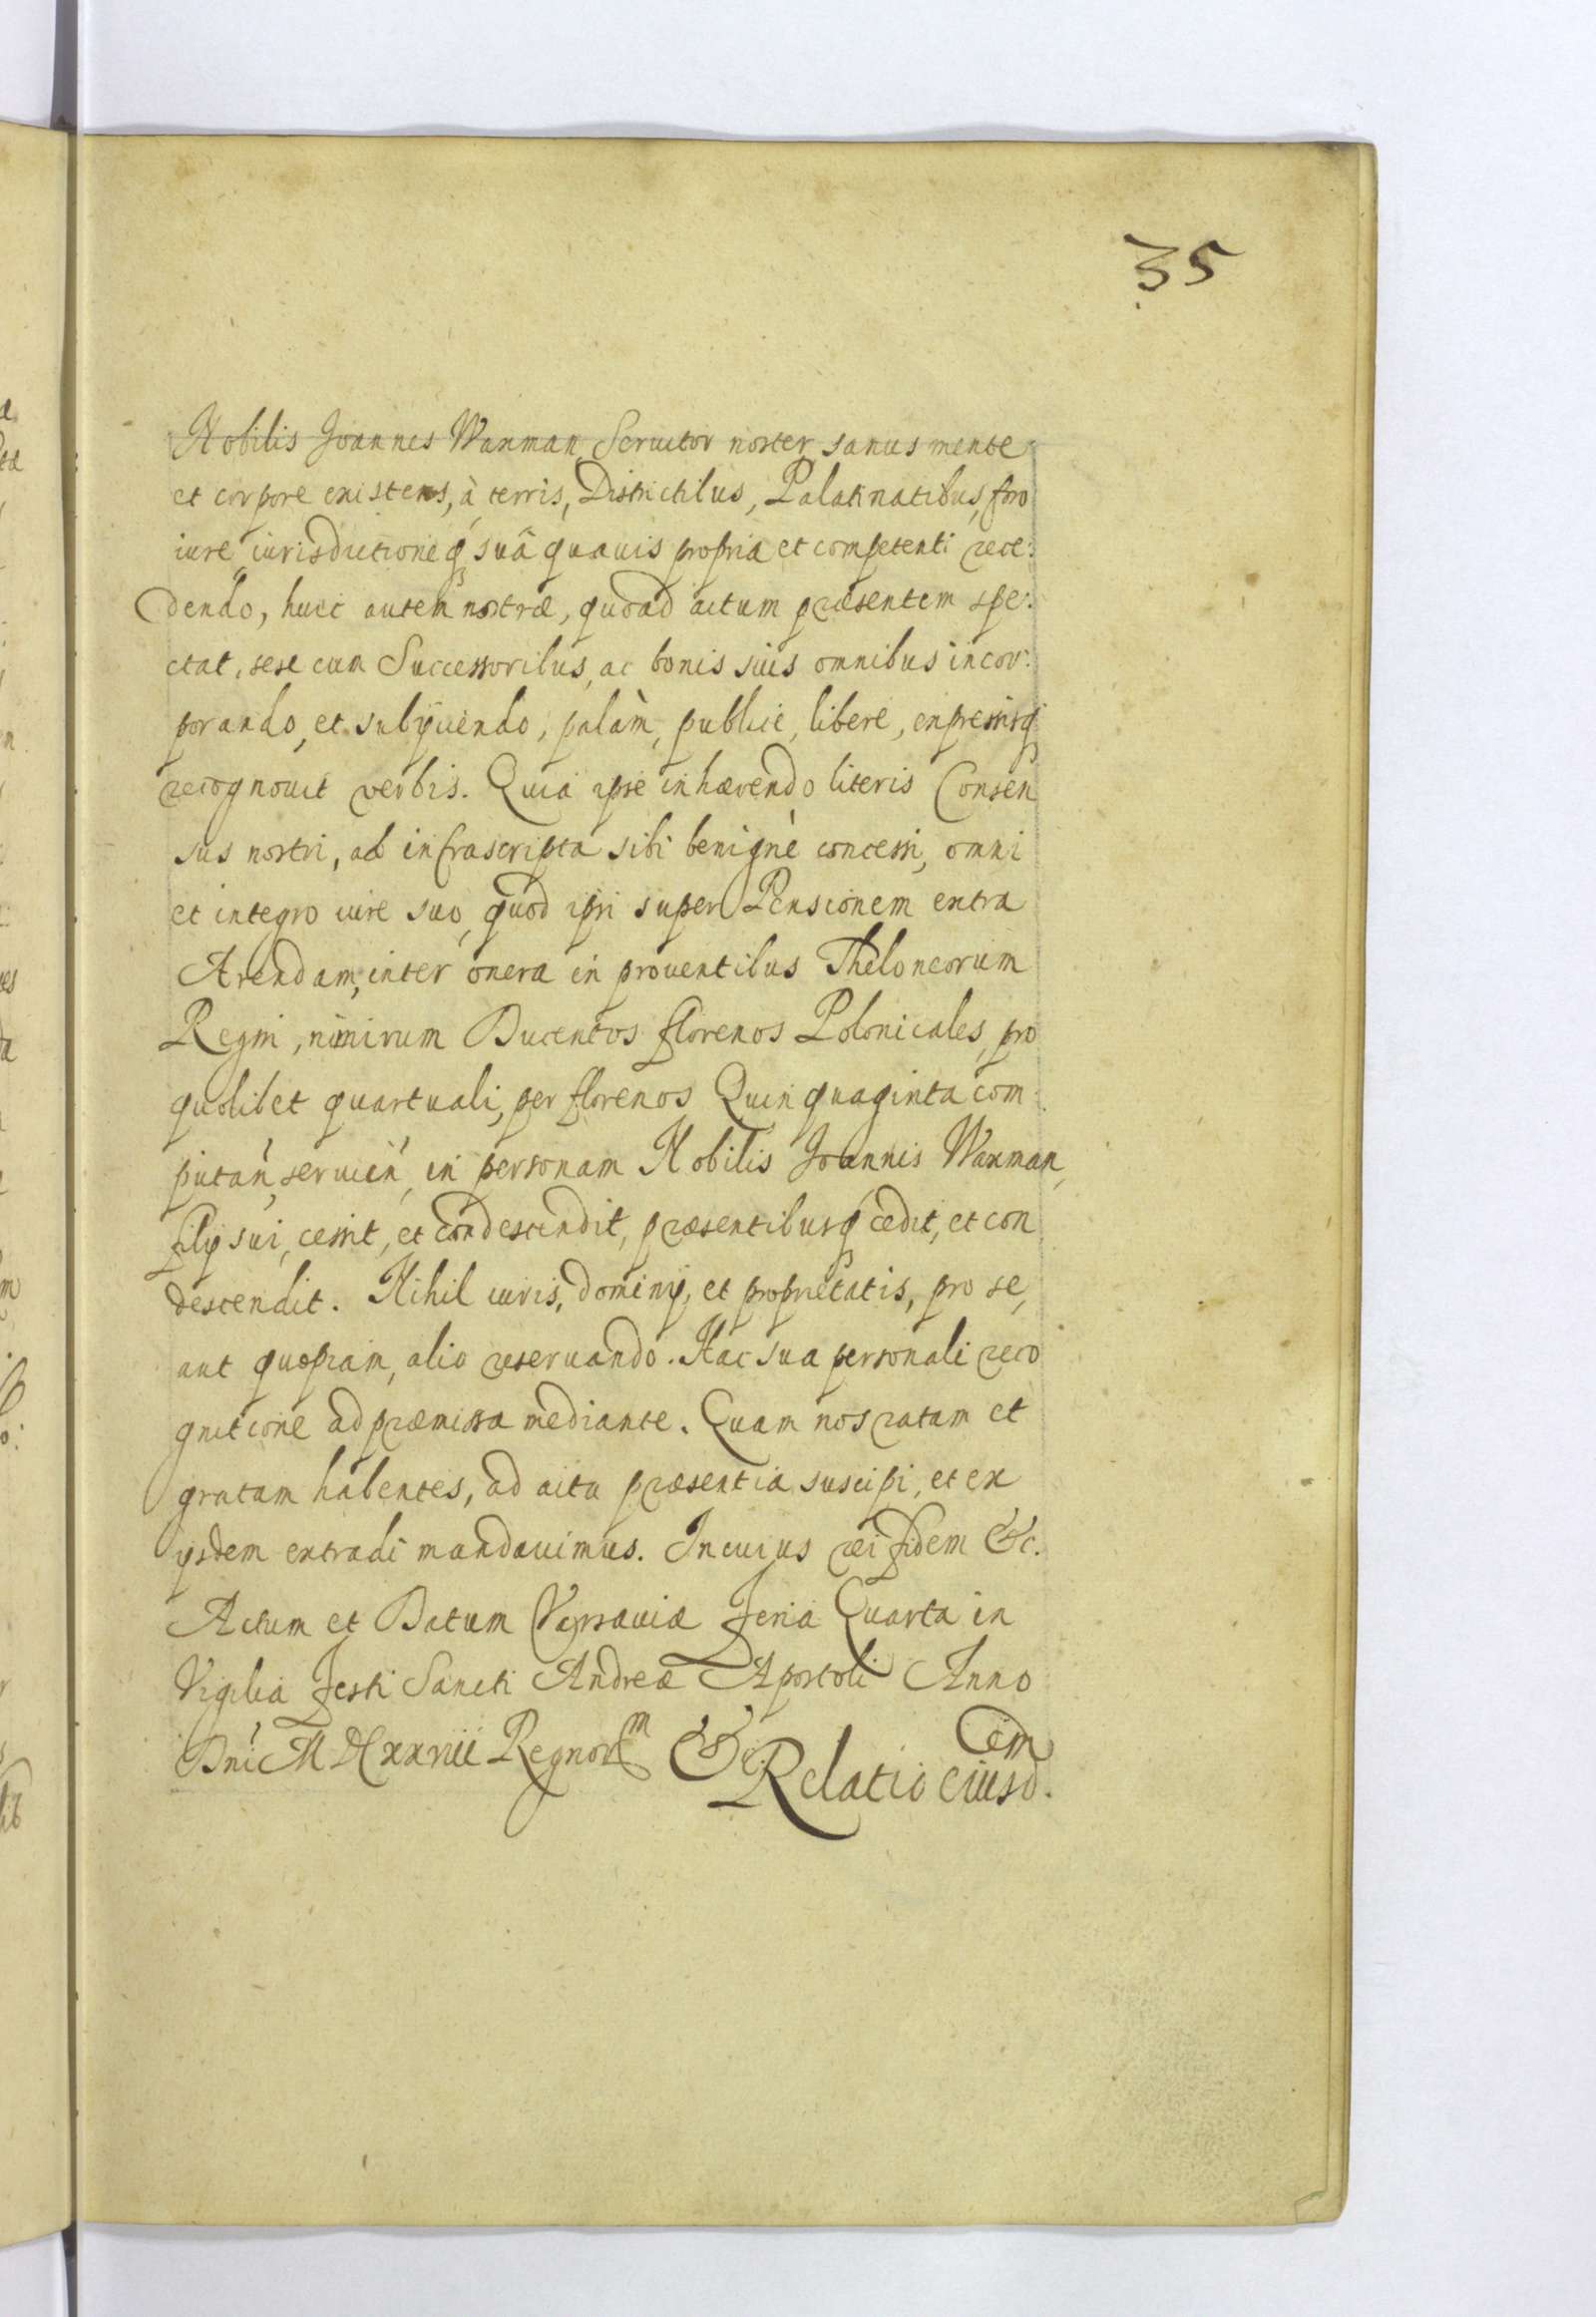 35
Nobilis Joannes Waxman Seruitor noster sanus mente
et corpore existens, à terris, Districtibus, Palatinatibus, foro
iure iurisdictioneq́ suâ quauis propria et competenti rece:
dendo, huic autem nostræ, quoad actum præsentem spe:
ctat, sese cum Successoribus, ac bonis suis omnibus incor:
porando, et subijciendo, palàm, publicè, libere, expressisq́
recognouit verbis. Quia ipse inhærendo literis Consen
sus nostri, ad infrascripta sibi benignè concessi, omni
et integro iure suo, quod ipsi super Pensionem extra
Arendam, inter onera in prouentibus Theloneorum
Regni, nimirum Ducentos florenos Polonicales, pro
quolibet quartuali, per florenos Quinquaginta com:
putan̄, seruien̄, in personam Nobilis Joannis Waxman,
filij sui, cessit, et condescendit, præsentibusq́ cedit, et con
descendit. Nihil iuris, dominij, et proprietatis, pro se,
aut quopiam, alio reseruando. Hac sua personali reco
gnitione ad præmissa mediante. Quam nos ratam et
gratam habentes, ad acta præsentia suscipi, et ex
ijsdem extradi mandauimus. In cuius rei fidem &c.
Actum et Datum Varsauiæ Feria Quarta in
Vigilia Festi Sancti Andreæ Apostoli Anno
Dni MDCxxvii Regnorm &c.
Relatio eiusdem.